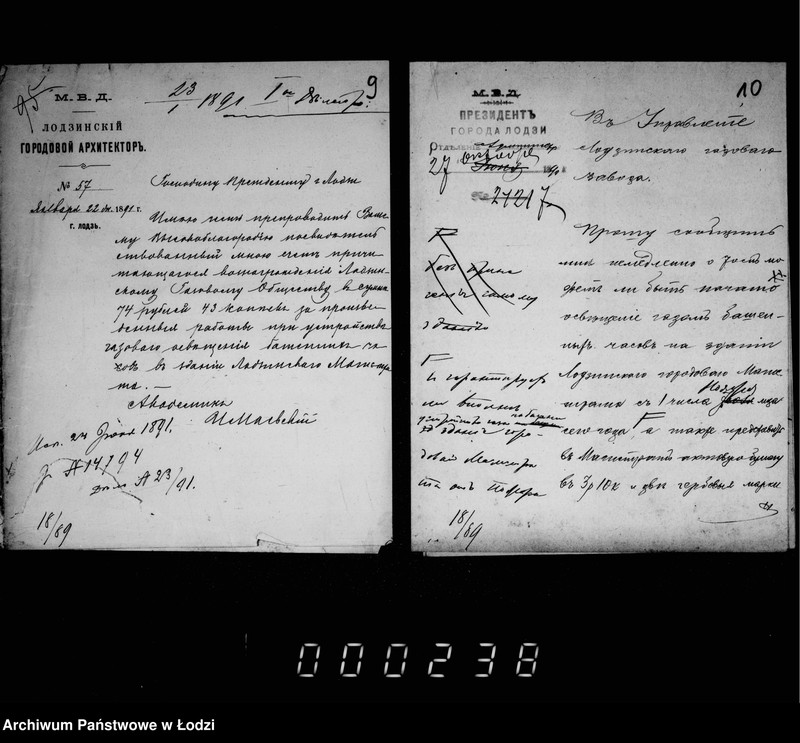 9
23/1 1891
М. В. Д.
ЛОДЗИНСКІЙ
ГОРОДОВОЙ АРХИТЕКТОРЪ.
№ 57
Января 22 дня 1891 г.
г. ЛОДЗЬ.
Господину Президенту г. Лодзи
Имѣю честь препроводить Ваше-
му Высокоблагородію посвидѣтель
ствованный мною счетъ причи
тающагося вознагражденія Лодзин
скому Газовому Обществу въ суммѣ
74 рублей 43 копѣекъ за произве
денныя работы при устройствѣ
газоваго освѣщенія башенныхъ ча
совъ въ зданіи Лодзинскаго Магистра
та. —
Академикъ
И Маевскій
Исп. 24 1891.
№ 14794
дѣло № 23/91.
18/89
10
М. В. Д.
ПРЕЗИДЕНТЪ
ГОРОДА ЛОДЗИ
27 октября
№ 21217
Въ Управленіе
Лодзинскаго газоваго
Завода.
Прошу сообщить
мнѣ немедленно о томъ мо
жетъ ли быть начато
освѣщеніе газомъ башен-
ныхъ часовъ на зданіи
Лодзинскаго городоваго Маги
страта съ 1 числа Ноября мца
сего года, а также представить
въ Магистратъ актовую бумагу
въ 3 р 10 к и двѣ гербовыя марки
городо-
ваго Магистра
та отъ
18/89
000238
Archiwum Państwowe w Łodzi